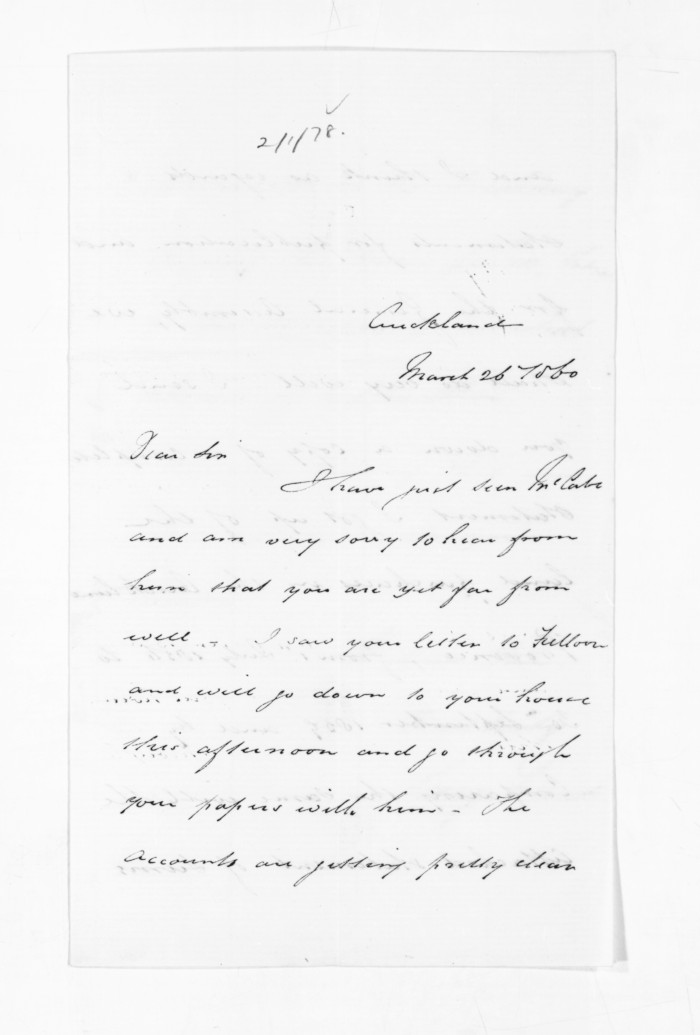 2/1/78.
Auckland
March 26 1860
Dear Sir
I have just seen McCabe
and am very sorry to hear from
him that you are yet far from
well - I saw your letter to Fulloon
and will go down to your house
this afternoon and go through
your papers with him - The
accounts are getting pretty clear